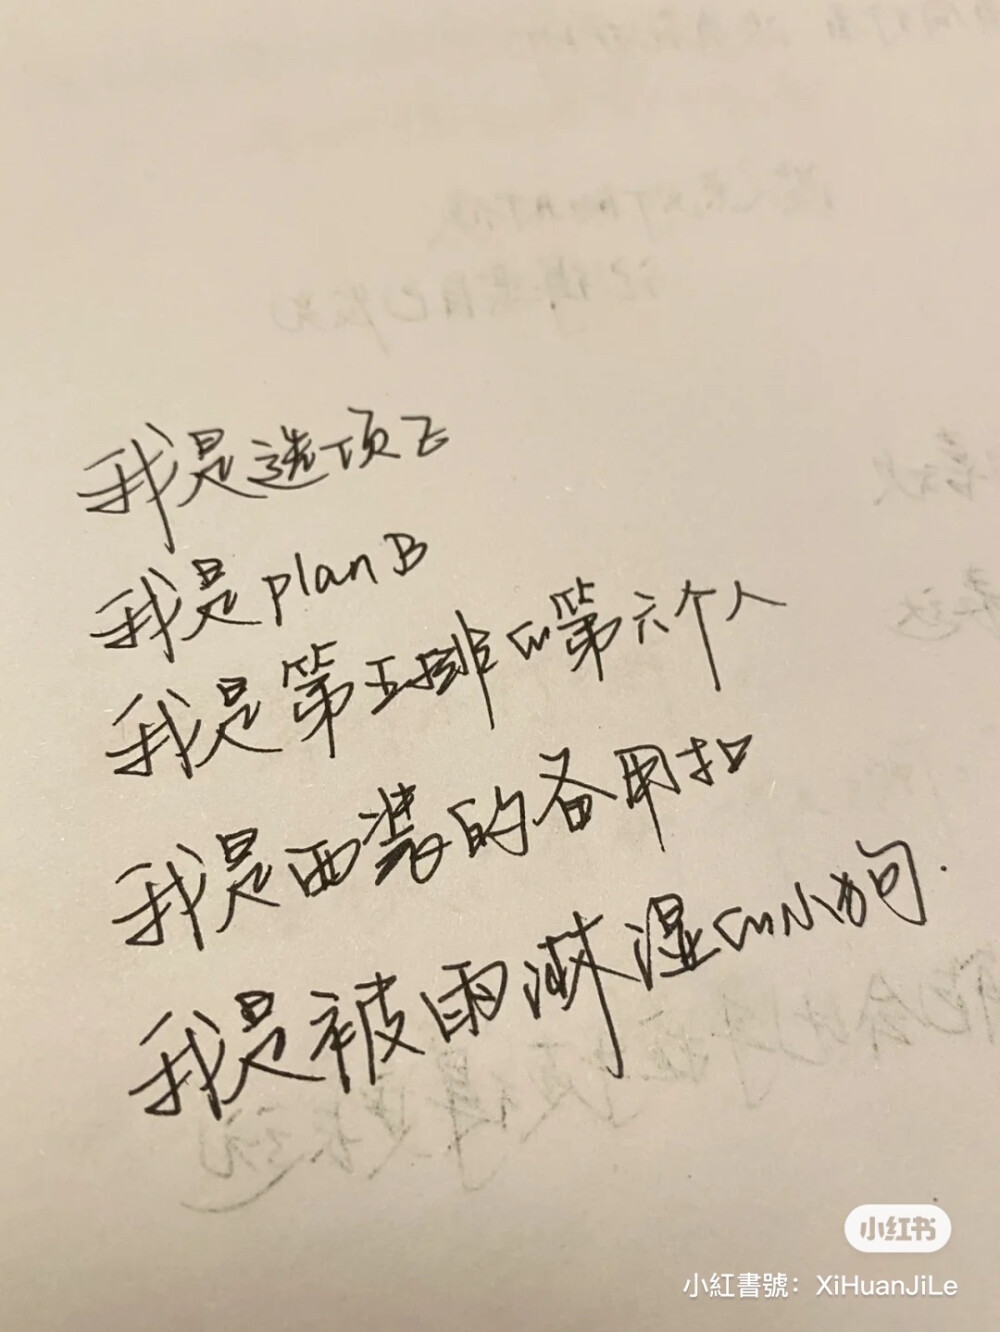 我是选项Z
我是planB
我是第五排的第六个人
我是西装的备用扣
我是被雨淋湿的小狗.
小红书
小紅書號：XiHuanJiLe